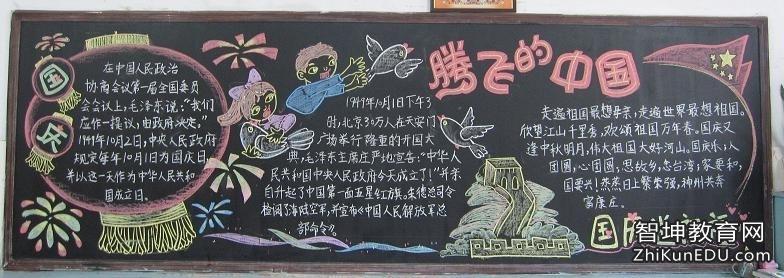 国庆
在中国人民政治
协商会议第一届全国委员
会会议上,毛泽东说:“我们
应作一提议,由政府决定。”
1949年10月2日,中央人民政府
规定每年10月1日为国庆日,
并以这一天作为中华人民共和
国成立日。
1949年10月1日下午3
时,北京30万人在天安门
广场举行隆重的开国大
典,毛泽东主席庄严地宣告:“中华人
民共和国中央人民政府今天成立了!”并亲
自升起了中国第一面五星红旗。朱德总司令
检阅了海陆空军,并宣布《中国人民解放军总
部命令》。
腾飞的中国
走遍祖国最想母亲,走遍世界最想祖国。
欣望江山千里秀,欢颂祖国万年春。国庆又
逢中秋明月,伟大祖国大好河山。国庆乐,八
团圆,心团圆,思故乡,念台湾;家要和,
国要兴!蒸蒸日上繁荣强,神州共奔
富康庄。
国庆
智坤教育网
ZhiKunEDU.com